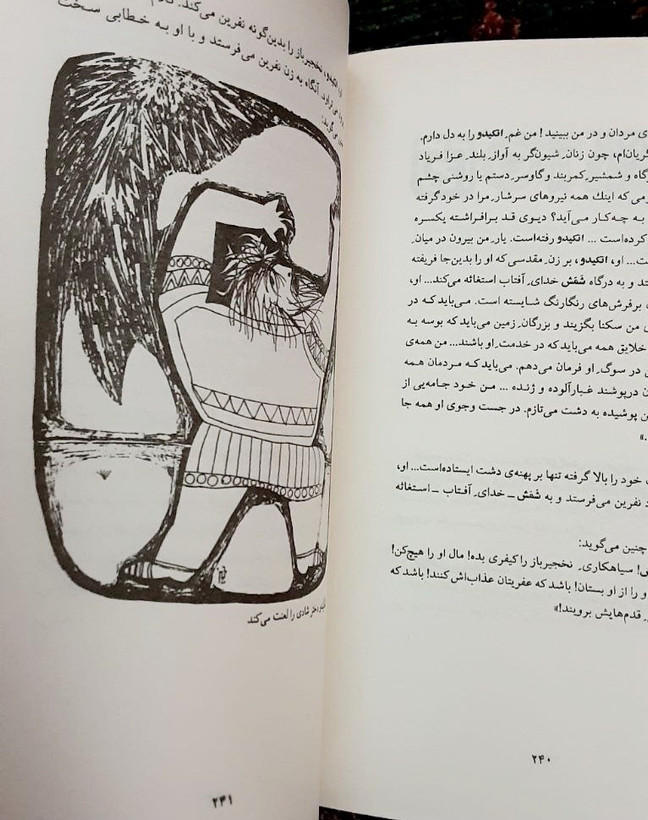 ی مردان و در من ببینید! من غم ِ انکیدو را به دل دارم.
گریان‌ام، چون زنان ِ شیون‌گر به آواز ِ بلند ِ عزا فریاد
رگاه و شمشیر ِ کمربند و گاوسر ِ دستم با روشنی چشم
می که اینك همه نیروهای سرشار ِ مرا در خود گرفته
به چه‌کار می‌آید؟ دیوی قد برافراشته یکسره
کرده‌است ... انکیدو رفته‌است. یار ِ من بیرون در میان ِ
ت... او، انکیدو، بر زن ِ مقدسی که او را بدین‌جا فریفته
تد و به درگاه شَمَش خدای ِ آفتاب استغاثه می‌کند... او،
بر فرش‌های رنگارنگ شایسته است. می‌باید که در
ی من سکنا بگزیند و بزرگان ِ زمین می‌باید که بوسه به
خلایق همه می‌باید که در خدمت ِ او باشند... من همه‌ی
در سوگ ِ او فرمان می‌دهم. می‌باید که مردمان همه
ن درپوشند غبارآلوده و ژنده ... من خود جامه‌یی از
ن پوشیده به دشت می‌تازم. در جست وجوی او همه جا
.»
خود را بالا گرفته تنها بر پهنه‌ی دشت ایستاده‌است... او،
د نفرین می‌فرستد و به شَمَش ــ خدای ِ آفتاب ــ استغاثه
چنین می‌گوید:
سیاهکاری ِ نخجیرباز را کیفری بده! مال او را هیچ‌کن!
و را از او بستان! باشد که عفریتان عذاب‌اش کنند! باشد که
قدم‌هایش برویند!»
۲۴۰
نخجیرباز را بدین‌گونه نفرین می‌کند.
آنگاه به زن نفرین می‌فرستد و با او به خطابی سخت
می‌گوید:
دختر شادی را لعنت می‌کند
۲۴۱